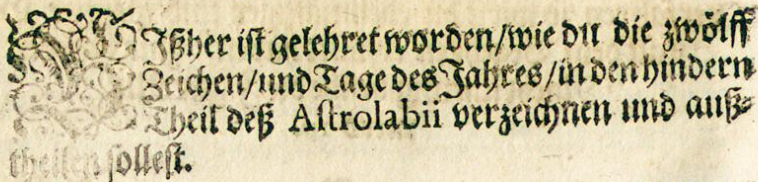 BIßher ist gelehret worden/wie du die zwölff
Zeichen/und Tage des Jahres/in den hindern
Theil deß Astrolabii verzeichnen und auß-
theilen sollest.